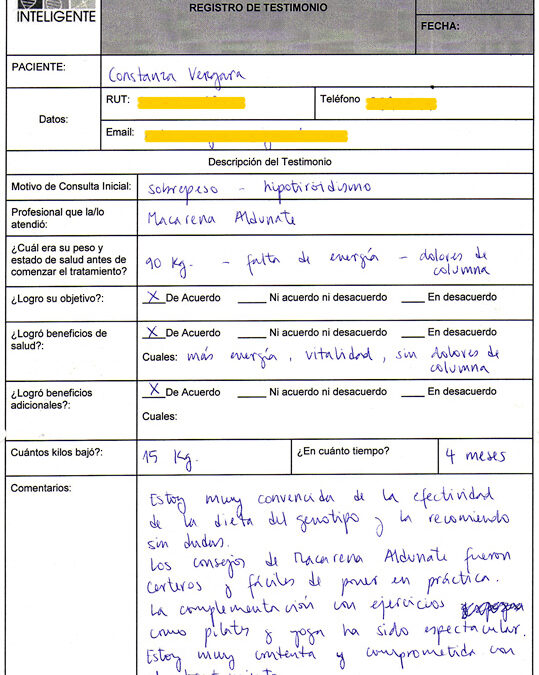 INTELIGENTE
REGISTRO DE TESTIMONIO
FECHA:
PACIENTE: Constanza Vergara
Datos:
RUT:
Teléfono
Email:
Descripción del Testimonio
Motivo de Consulta Inicial: sobrepeso - hipotiroidismo
Profesional que la/lo
atendió:
Macarena Aldunate
¿Cuál era su peso y
estado de salud antes de
comenzar el tratamiento?
90 Kg. - falta de energía - dolores de
columna
¿Logro su objetivo?: X De Acuerdo ___ Ni acuerdo ni desacuerdo ___ En desacuerdo
¿Logró beneficios de
salud?:
X De Acuerdo ___ Ni acuerdo ni desacuerdo ___ En desacuerdo
Cuales: más energía, vitalidad, sin dolores de
columna
¿Logró beneficios
adicionales?:
X De Acuerdo ___ Ni acuerdo ni desacuerdo ___ En desacuerdo
Cuales:
Cuántos kilos bajó?: 15 Kg. ¿En cuánto tiempo? 4 meses
Comentarios:
Estoy muy convencida de la efectividad
de la dieta del genotipo y la recomiendo
sin dudas.
Los consejos de Macarena Aldunate fueron
certeros y fáciles de poner en práctica.
La complementación con ejercicios
como pilates y yoga ha sido espectacular.
Estoy muy contenta y comprometida con